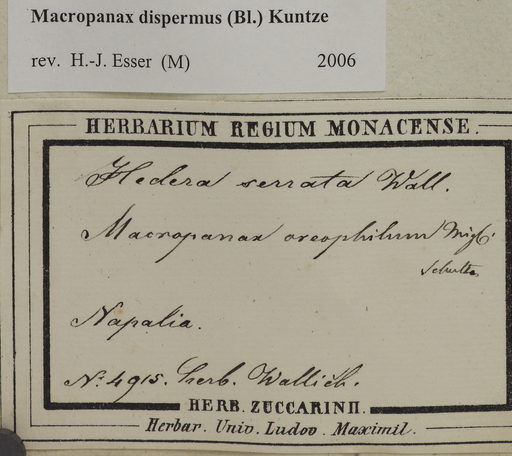 Macropanax dispermus (Bl.) Kuntze
rev. H.-J. Esser (M) 2006
HERBARIUM REGIUM MONACENSE.
Hedera serrata Wall.
Macropanax oreophilum Miql.
Schultz
Napalia.
No. 4915. herb. Wallich.
HERB. ZUCCARINII.
Herbar. Univ. Ludov. Maximil.